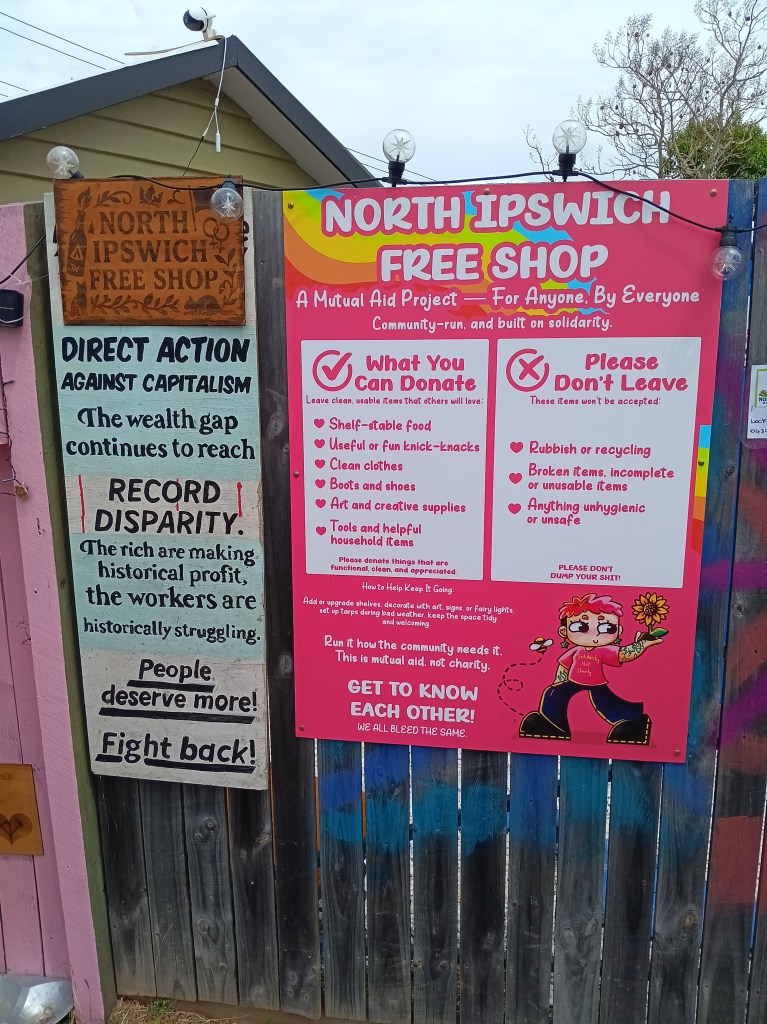 NORTH
IPSWICH
FREE SHOP
DIRECT ACTION
AGAINST CAPITALISM
The wealth gap
continues to reach
RECORD
DISPARITY.
The rich are making
historical profit,
the workers are
historically struggling.
People
deserve more!
Fight back!
NORTH IPSWICH
FREE SHOP
A Mutual Aid Project — For Anyone, By Everyone
Community-run, and built on solidarity.
What You
Can Donate
Leave clean, usable items that others will love:
Shelf-stable food
Useful or fun knick-knacks
Clean clothes
Boots and shoes
Art and creative supplies
Tools and helpful
household items
Please donate things that are
functional, clean, and appreciated.
Please
Don't Leave
These items won't be accepted:
Rubbish or recycling
Broken items, incomplete
or unusable items
Anything unhygienic
or unsafe
PLEASE DON'T
DUMP YOUR SHIT!
How to Help Keep It Going:
Add or upgrade shelves, decorate with art, signs, or fairy lights,
set up tarps during bad weather, keep the space tidy
and welcoming.
Run it how the community needs it.
This is mutual aid, not charity.
GET TO KNOW
EACH OTHER!
WE ALL BLEED THE SAME.
Solidarity
Not
Charity